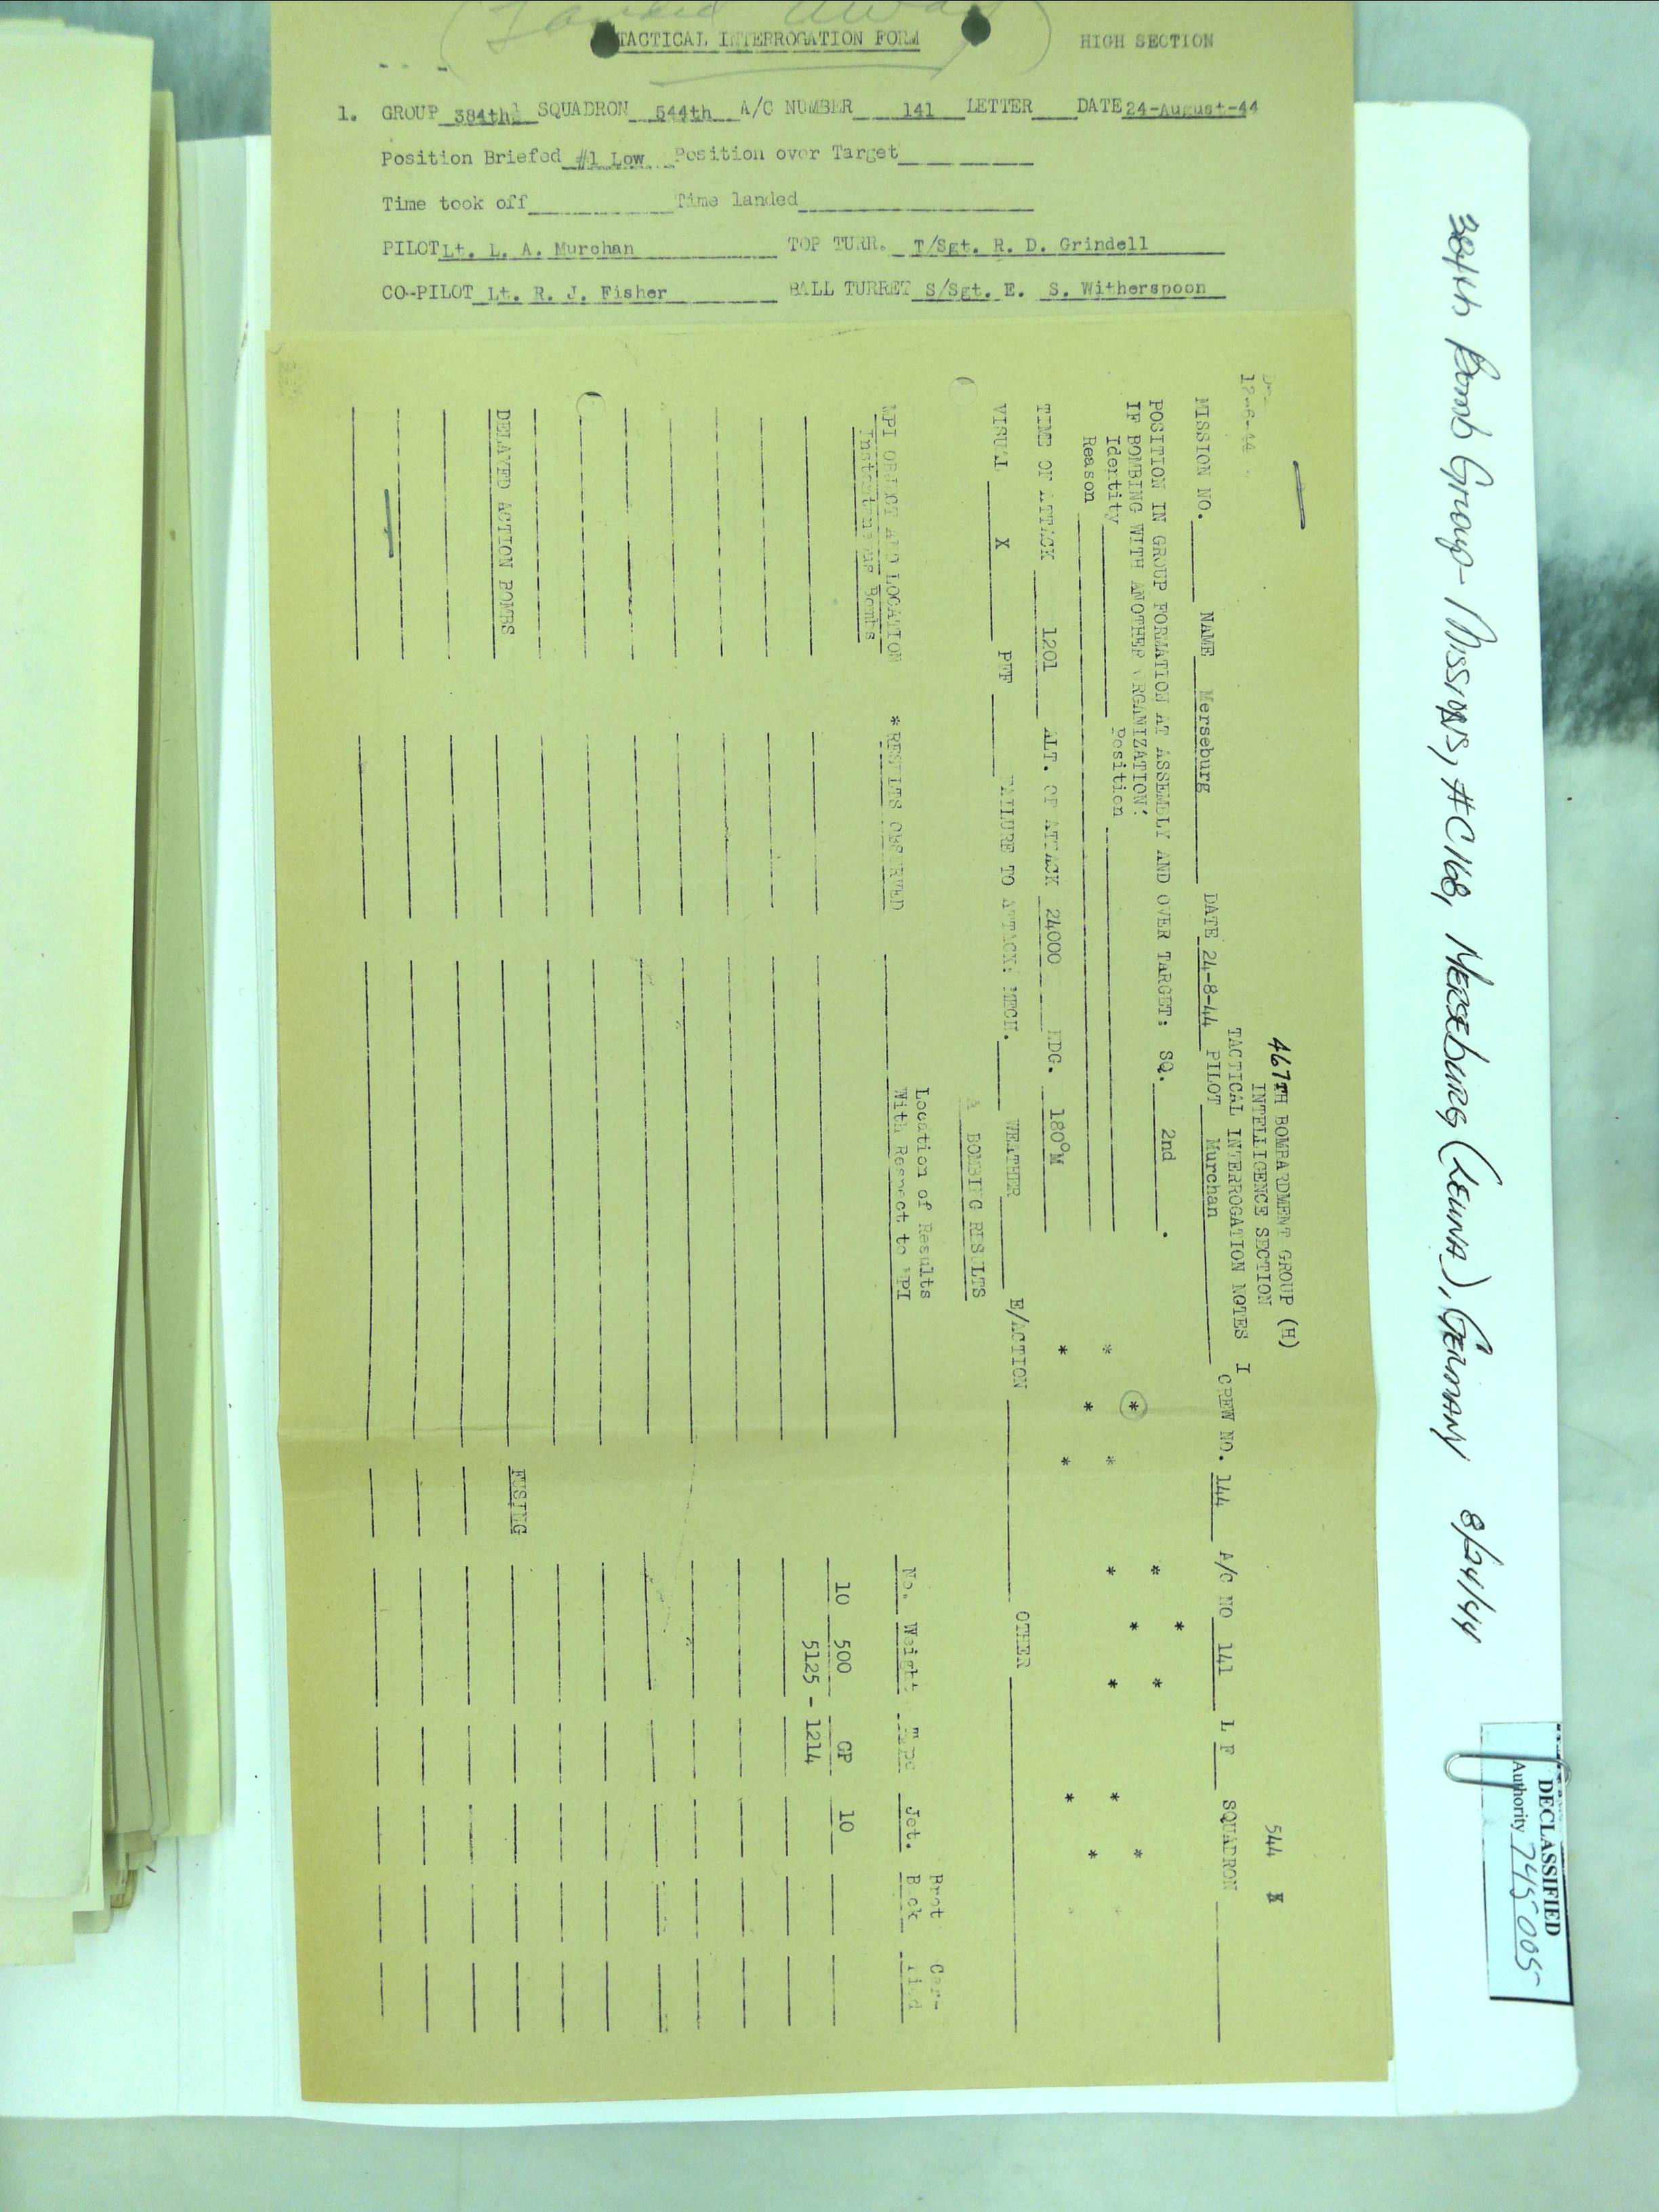 (Landed Away)
TACTICAL INTERROGATION FORM HIGH SECTION
1. GROUP 384th SQUADRON 544th A/C NUMBER 141 LETTER DATE 24-August-44
Position Briefed #1 Low Position over Target
Time took off Time landed
PILOT Lt. L. A. Murchan TOP TURR. T/Sgt. R. D. Grindell
CO-PILOT Lt. R. J. Fisher BALL TURRET S/Sgt. E. S. Witherspoon
467TH BOMBARDMENT GROUP (H) 544
INTELLIGENCE SECTION
12-6-44 TACTICAL INTERROGATION NOTES I
MISSION NO. NAME Merseburg DATE 24-8-44 PILOT Murchan CREW NO. 144 A/C NO 141 L F SQUADRON
POSITION IN GROUP FORMATION AT ASSEMBLY AND OVER TARGET: SQ. 2nd .
IF BOMBING WITH ANOTHER ORGANIZATION:
Identity Position
Reason
TIME OF ATTACK 1201 ALT. OF ATTACK 24000 HDG. 180°M
VISUAL X PFF FAILURE TO ATTACK: MECH. WEATHER E/ACTION OTHER
A BOMBING RESULTS
Location of Results Brot Car-
MPI OBJECT AND LOCATION *RESULTS OBSERVED With Respect to MPI No. Weight Type Jet. Back ried
Instantaneous Bombs
10 500 GP 10
5125 - 1214
DELAYED ACTION BOMBS FUSING
384th Bomb Group - Missions, #C168, Merseburg (Leuna), Germany 8/24/44
DECLASSIFIED
Authority 745005